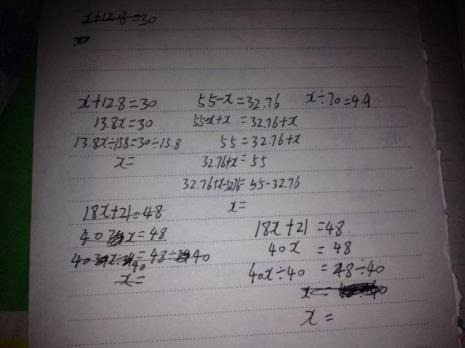 x+12.8=30
x+12.8=30
13.8x=30
13.8x÷13.8=30÷13.8
x=
55-x=32.76
55-x+x=32.76+x
55=32.76+x
32.76+x=55
32.76+x-32.76=55-32.76
x=
x÷70=4.9
18x+21=48
40x=48
x=
18x+21=48
40x=48
40x÷40=48÷40
x=